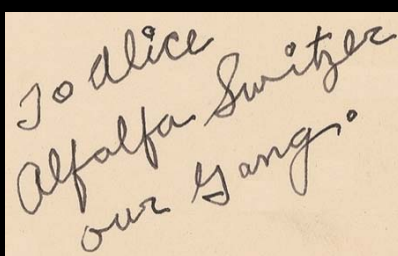 To Alice
Alfalfa Switzer
our Gang.